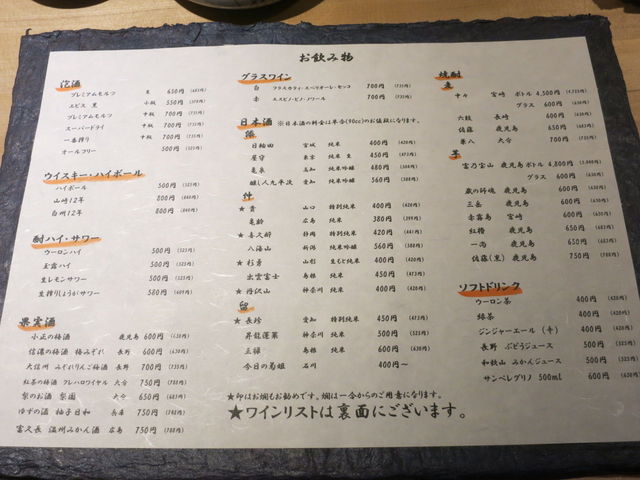 お飲み物
泡酒
プレミアムモルツ 生 650円 (683円)
エビス 黒 小瓶 550円 (578円)
プレミアムモルツ 中瓶 700円 (735円)
スーパードライ 中瓶 700円 (735円)
一番搾り 中瓶 700円 (735円)
オールフリー 500円 (525円)
ウイスキー・ハイボール
ハイボール 500円 (525円)
山崎12年 800円 (840円)
白州12年 800円 (840円)
酎ハイ・サワー
ウーロンハイ 500円 (525円)
玉露ハイ 500円 (525円)
生レモンサワー 500円 (525円)
生搾りしょうがサワー 580円 (609円)
果実酒
小正の梅酒 鹿児島 600円 (630円)
信濃の梅酒 梅みぞれ 長野 600円 (630円)
大信州 みぞれりんご梅酒 長野 700円 (735円)
紅茶の梅酒 フレハロワイヤル 大分 750円 (788円)
梨のお酒 梨園 大分 650円 (683円)
ゆずの酒 柚子日和 兵庫 750円 (788円)
富久長 温州みかん酒 広島 750円 (788円)
グラスワイン
白 フラスカティ・スペリオーレ・セッコ 700円 (735円)
赤 エスピノ・ピノ・ノワール 700円 (735円)
日本酒 ※日本酒の料金は半合(90cc)のお値段になります。
日輪田 宮城 純米 400円 (420円)
屋守 東京 純米 生 450円 (473円)
亀泉 高知 純米吟醸 480円 (504円)
醸し人九平次 愛知 純米吟醸 560円 (588円)
★ 貴 山口 特別純米 400円 (420円)
亀齢 広島 純米 380円 (399円)
★ 喜久酔 静岡 特別純米 420円 (441円)
八海山 新潟 純米吟醸 560円 (588円)
★ 杉勇 山形 生もと純米 400円 (420円)
出雲富士 島根 純米 450円 (473円)
★ 丹沢山 神奈川 純米 400円 (420円)
★ 長珍 愛知 特別純米 450円 (473円)
昇龍蓬莱 神奈川 純米 500円 (525円)
王祿 島根 純米 600円 (630円)
今日の菊姫 石川 400円〜
★印はお燗もお勧めです。燗は一合からのご用意になります。
★ワインリストは裏面にございます。
焼酎
麦
中々 宮崎 ボトル 4,500円 (4,725円)
グラス 600円 (630円)
六鼓 長崎 600円 (630円)
佐藤 鹿児島 650円 (683円)
兼八 大分 700円 (735円)
芋
富乃宝山 鹿児島 ボトル 4,800円 (5,040円)
グラス 600円 (630円)
蔵の師魂 鹿児島 600円 (630円)
三岳 鹿児島 600円 (630円)
赤霧島 宮崎 600円 (630円)
紅椿 鹿児島 650円 (683円)
一尚 鹿児島 650円 (683円)
佐藤(黒) 鹿児島 750円 (788円)
ソフトドリンク
ウーロン茶 400円 (420円)
緑茶 400円 (420円)
ジンジャーエール (辛) 400円 (420円)
長野 ぶどうジュース 500円 (525円)
和歌山 みかんジュース 500円 (525円)
サンペレグリノ 500ml 600円 (630円)